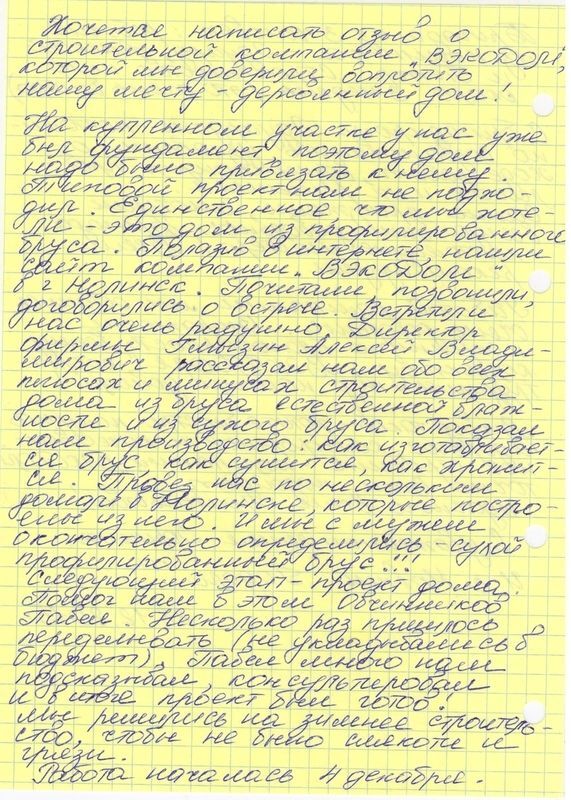 Хочется написать отзыв о
строительной компании „ВЭКОДОМ",
которой мы доверили воплотить
нашу мечту - деревянный дом!
На купленном участке у нас уже
был фундамент, поэтому дом
надо было привязать к нему.
Типовой проект нам не подхо-
дил. Единственное что мы хоте-
ли - это дом из профилированного
бруса. Полазив в интернете, нашли
сайт компании „ВЭКОДОМ"
в г Нолинск. Почитали, позвонили,
договорились о встрече. Встретили
нас очень радушно. Директор
фирмы Глызин Алексей Влади-
мирович рассказал нам обо всех
плюсах и минусах строительства
дома из бруса естественной влаж-
ности и из сухого бруса. Показал
нам производство: как изготавливает-
ся брус, как сушится, как хранит-
ся. Провёз нас по нескольким
домам в Нолинске, которые постро-
ены из него. И мы с мужем
окончательно определились - сухой
профилированный брус!!!
Следующий этап - проект дома.
Помог нам в этом Овчинников
Павел. Несколько раз пришлось
переделывать (не укладывались в
бюджет). Павел много нам
подсказывал, консультировал
и в итоге проект был готов.
Мы решились на зимнее строитель-
ство, чтобы не было слякоти и
грязи.
Работа началась 4 декабря.